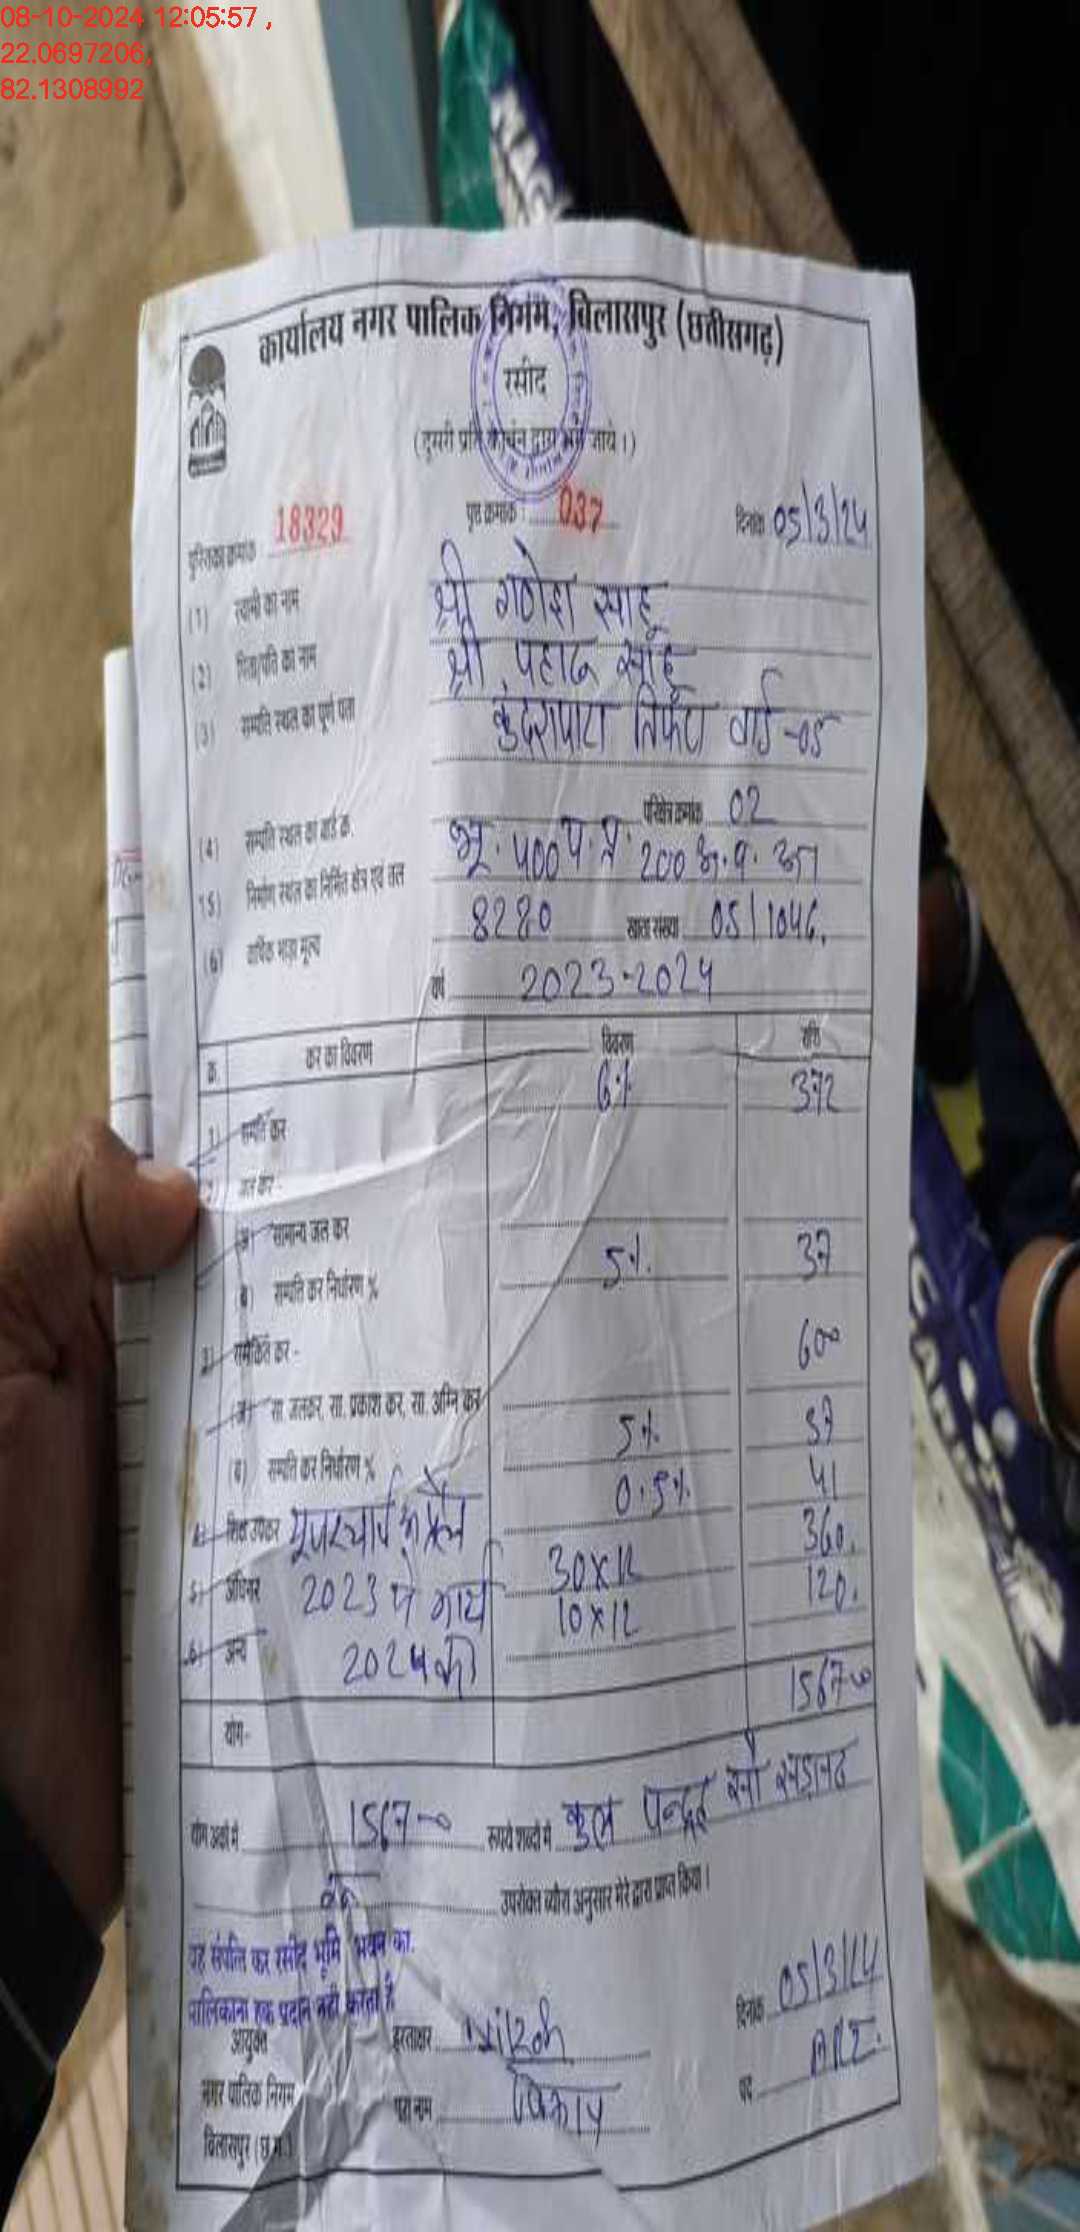 08-10-2024 12:05:57 ,
22.0697206,
82.1308992
MAGI
कार्यालय नगर पालिक निगम, बिलासपुर (छत्तीसगढ़)
रसीद
(दुसरी प्रति कार्बन द्वारा भरी जाये।)
पुस्तिका क्रमांक 18329 पृष्ठ क्रमांक : 037 दिनांक 05/3/24
(1) स्वामी का नाम श्री गणेश साहू
(2) पिता/पति का नाम श्री साहू
(3) सम्पति स्थल का पूर्ण पता वार्ड -05
(4) सम्पति स्थल का वार्ड क्र. परिक्षेत्र क्रमांक 02
(5) निर्माण स्थल का निर्मित क्षेत्र एवं तल भू. 400 200
(6) वार्षिक भाड़ा मूल्य 8280 खाता संख्या 05/1046.
वर्ष 2023-2024
क्र. कर का विवरण विवरण राशि
1) सम्पति कर 6% 372
2) जल कर -
(अ) सामान्य जल कर
(ब) सम्पति कर निर्धारण % 5% 37
3) समेकित कर - 600
(अ) सा. जलकर, सा. प्रकाश कर, सा. अग्नि कर
(ब) सम्पति कर निर्धारण % 5% 37
4) शिक्षा उपकर 0.5% 41
5) अधिभार 2023 30x12 360.
6) अन्य 2024 10x12 120.
योग- 1567-00
योग अंको में 1567-00 रूपये शब्दो में कुल पन्द्रह सौ सड़सठ
उपरोक्त ब्यौरा अनुसार मेरे द्वारा प्राप्त किया।
यह संपत्ति कर रसीद भूमि भवन का.
मालिकाना हक प्रदान नही करता है
आयुक्त हस्ताक्षर दिनांक 05/3/24
नगर पालिक निगम पूरा नाम पद ARI.
बिलासपुर (छ.ग.)